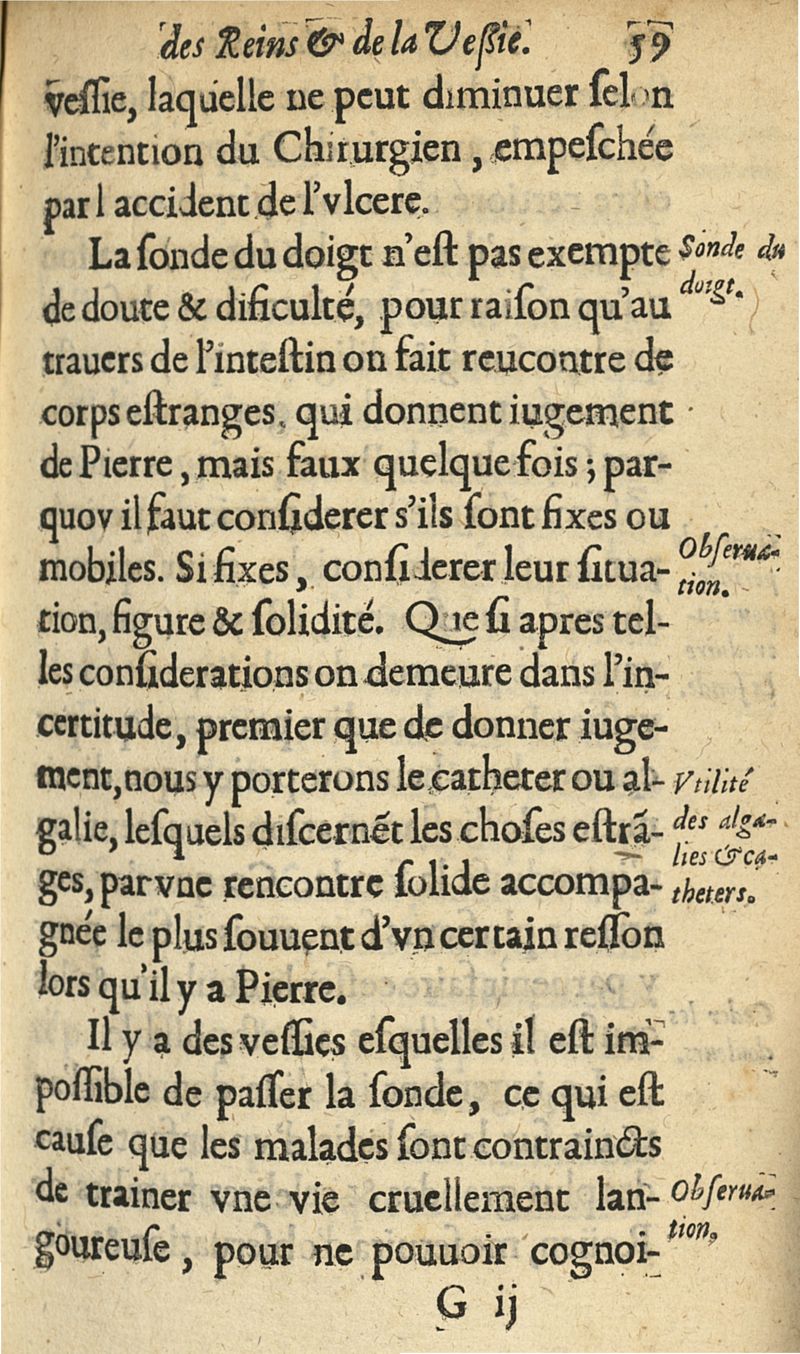 des Reins & de la Veſſie. 59
veſſie, laquelle ne peut diminuer ſelon
l'intention du Chirurgien, empeſchée
par l accident de l'vlcere.
La ſonde du doigt n'eſt pas exempte
Sonde du
doigt.
de doute & dificulté, pour raiſon qu'au
trauers de l'inteſtin on fait reucontre de
corps eſtranges, qui donnent iugement
de Pierre, mais faux quelque fois ; par-
quoy il faut conſiderer s'ils ſont fixes ou
mobiles. Si fixes, conſiderer leur ſitua-
Obſerua-
tion.
tion, figure & ſolidité. Que ſi apres tel-
les conſiderations on demeure dans l'in-
certitude, premier que de donner iuge-
ment, nous y porterons le catheter ou al-
galie, leſquels diſcernẽt les choſes eſtrã-
ges, par vne rencontre ſolide accompa-
Vtilité
des alga-
lies & ca-
theters.
gnée le plus ſouuent d'vn certain reſſon
lors qu'il y a Pierre.
Il y a des veſſies eſquelles il eſt im-
poſſible de paſſer la ſonde, ce qui eſt
cauſe que les malades ſont contraincts
de trainer vne vie cruellement lan-
goureuſe, pour ne pouuoir cognoi-
Obſerua-
tion.
G ij